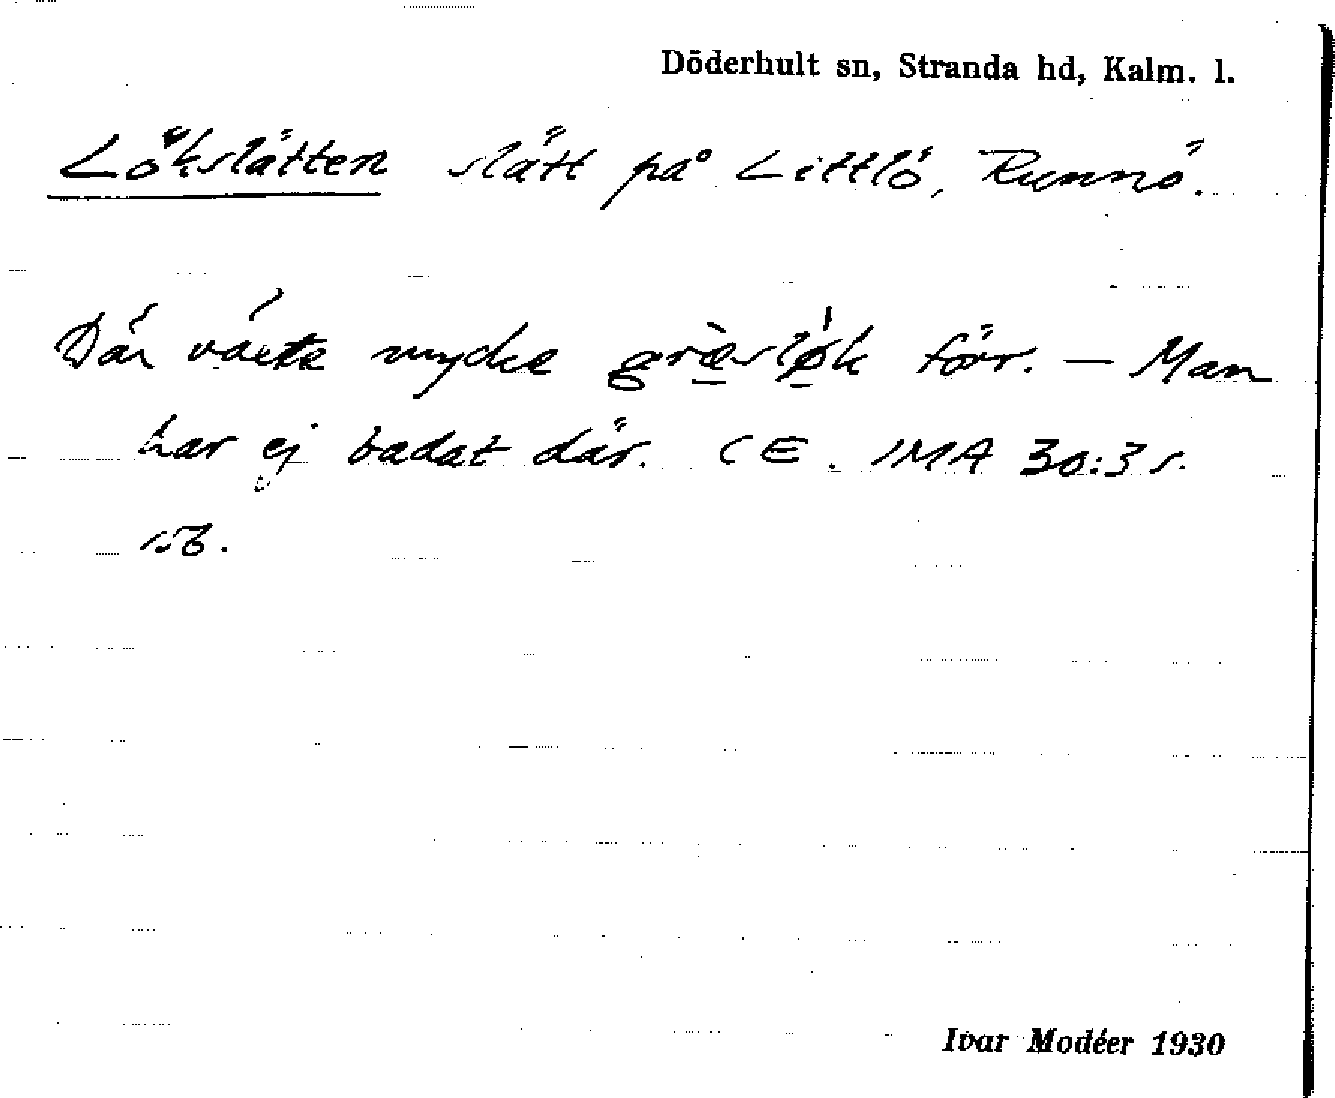 Döderhult sn, Stranda hd, Kalm. l.
Lökslätten slätt på Littlö, Runnö.
Där växte mycke græsløk förr. — Man
har ej badat där. CE. IMA 30:3 s.
Ivar Modéer 1930